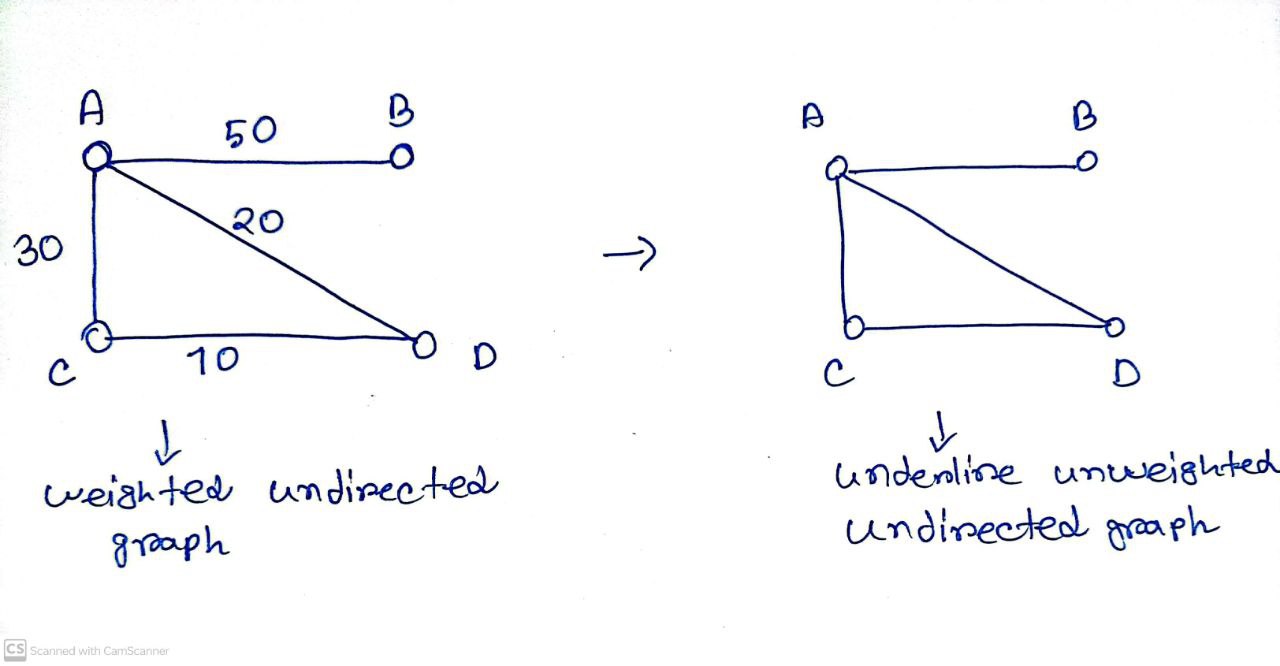 A
B
50
20
30
10
C
D
→
A
B
C
D
↓
weighted undirected
graph
↓
underline unweighted
undirected graph
CS Scanned with CamScanner